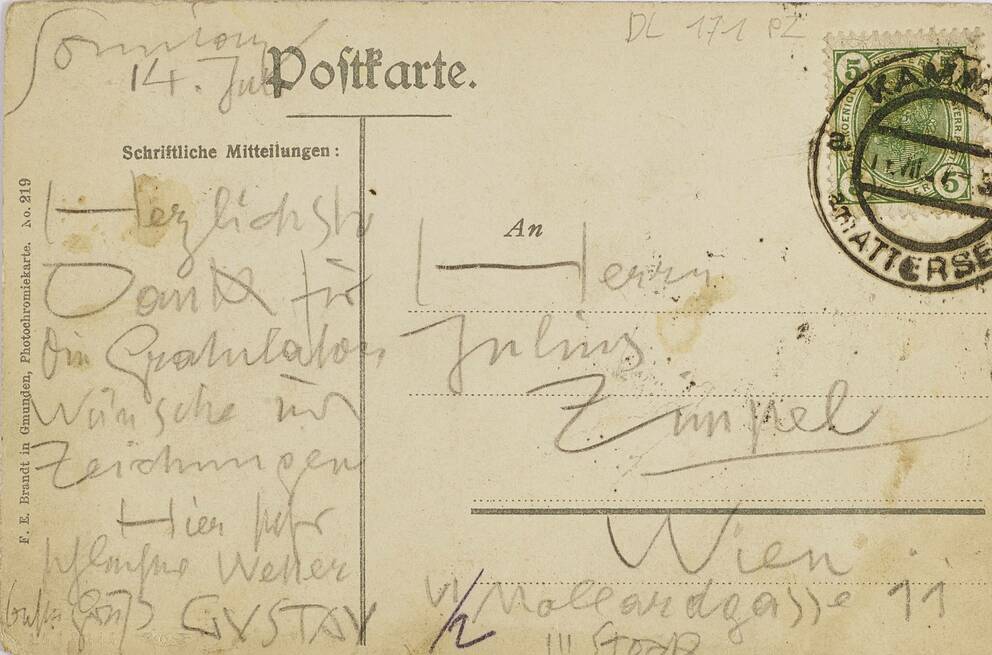 DL 171 PZ
14. Juli
Postkarte.
Schriftliche Mitteilungen:
F. E. Brandt in Gmunden, Photochromiekarte. No. 219
Herzlichste
Dank für
die Gratulations
Wünsche und
Zeichnungen
Hier sehr
Wetter
GUSTAV
An
Herrn
Julius
Zimpel
Wien
VI Mollardgasse 11
III Stock
5
5
KAMM
ATTERSE